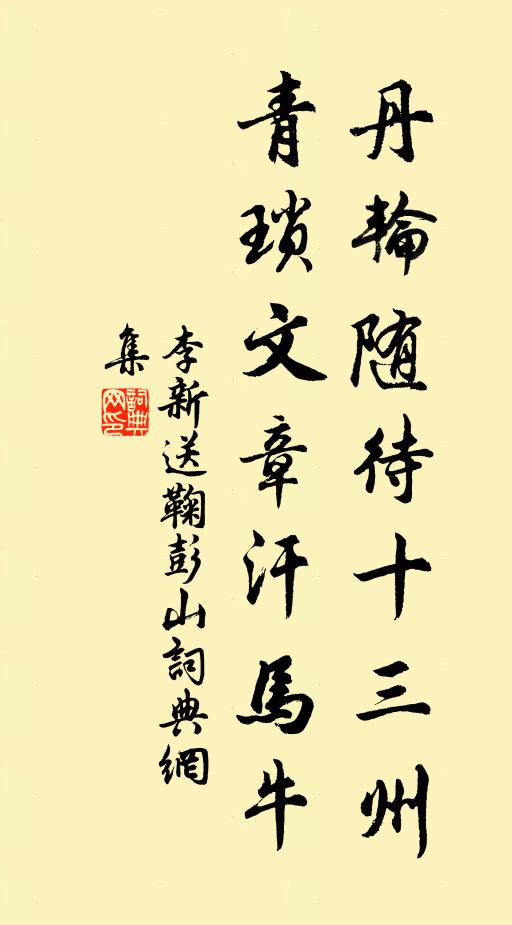 丹輪随待十三州
青瑣文章汗馬牛
李新送鞠彭山詞典網
集
詞典
网印